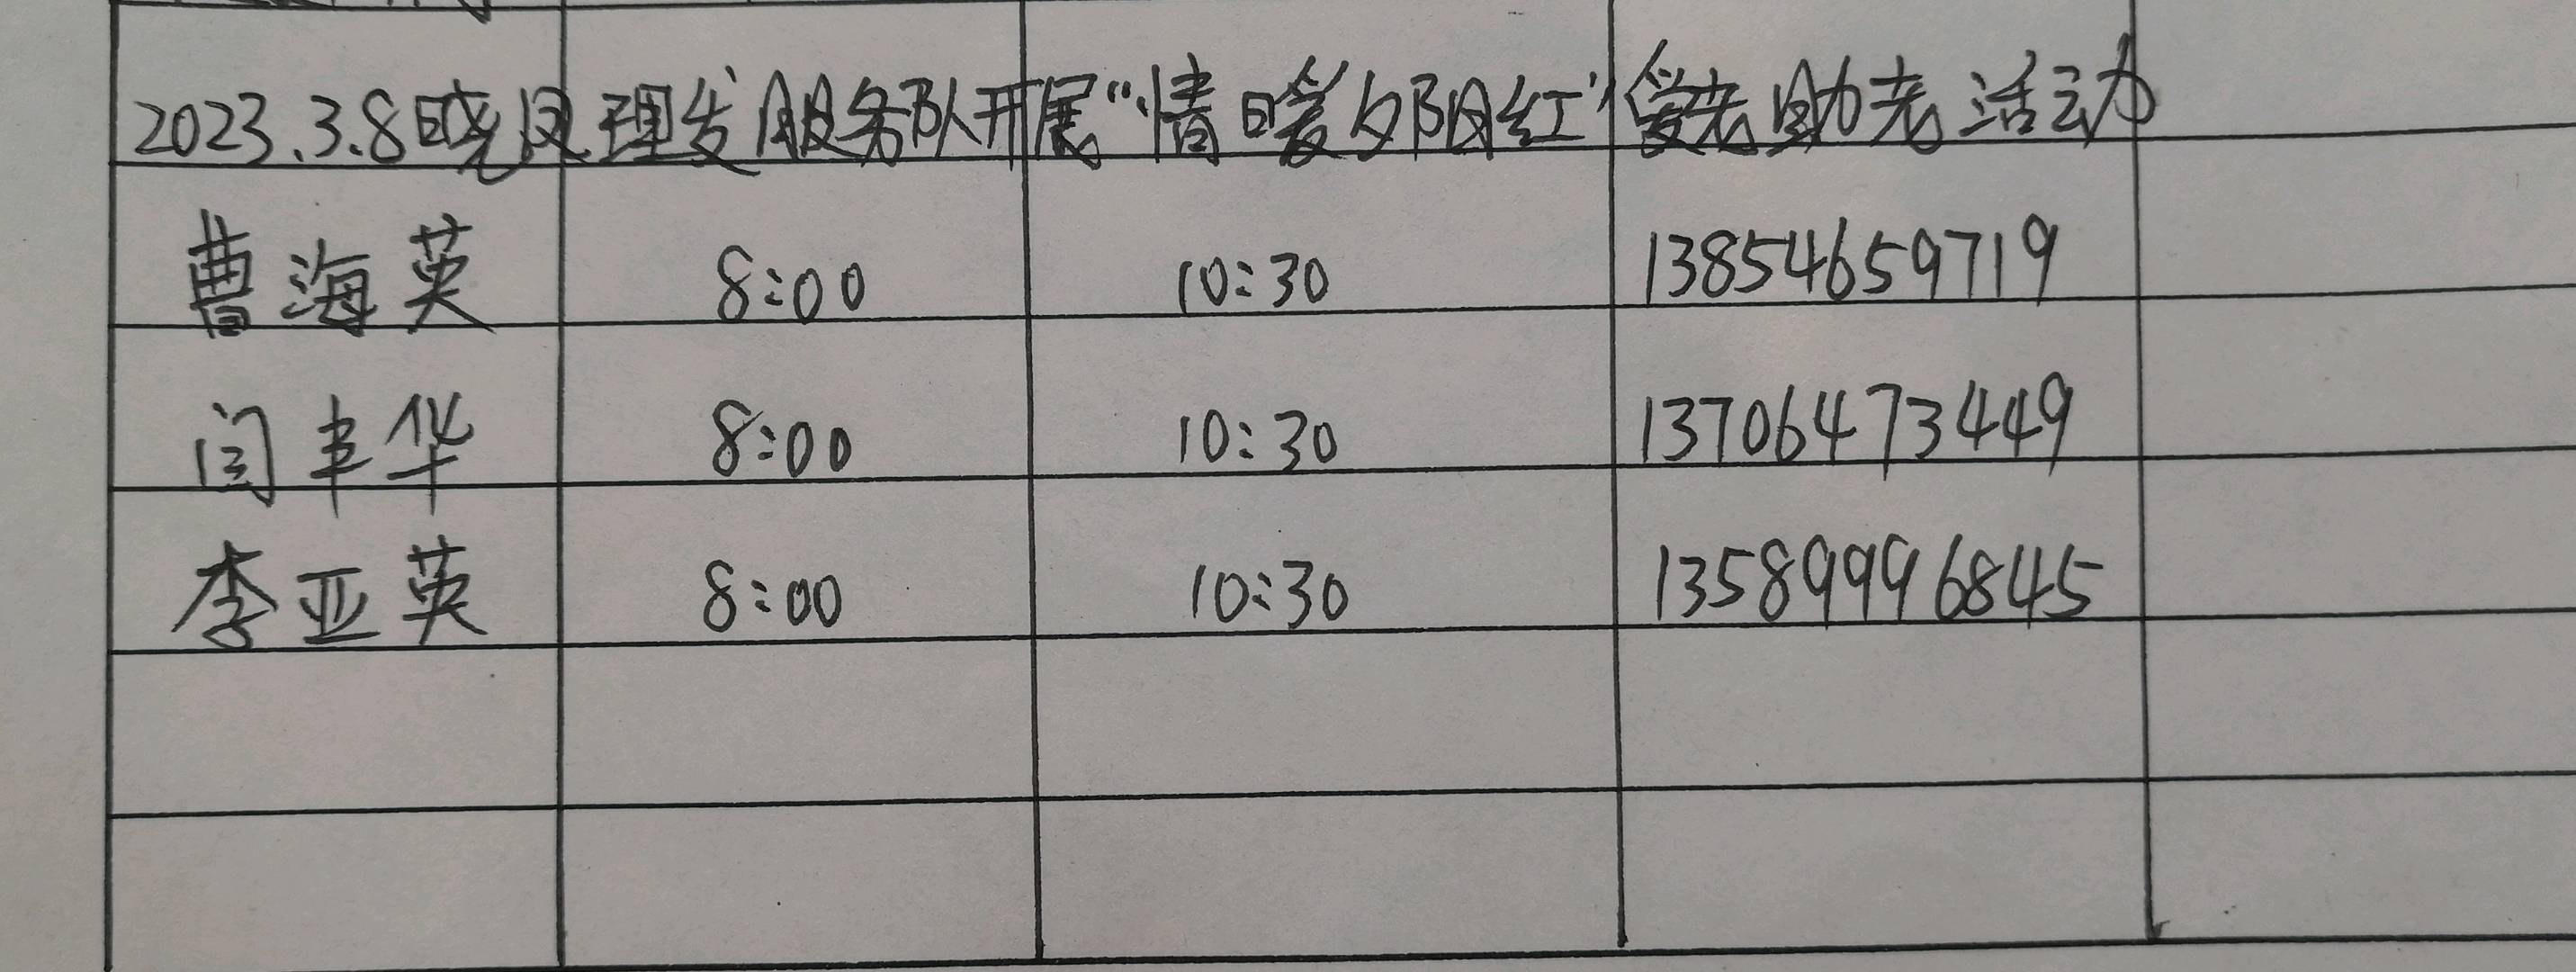 2023.3.8晓凤理发服务队开展“情暖夕阳红”爱老助老活动
曹海英 8:00 10:30 13854659719
闫丰华 8:00 10:30 13706473449
李亚英 8:00 10:30 13589996845